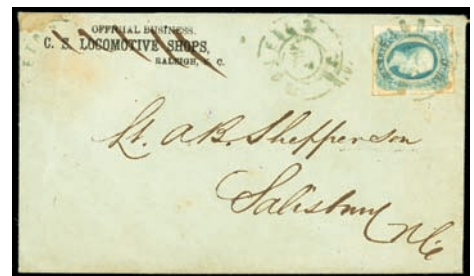 OFFICIAL BUSINESS.
C. S. LOCOMOTIVE SHOPS,
RALEIGH, N. C.
Lt. A. B. Shepperson
Salisbury
N.C.